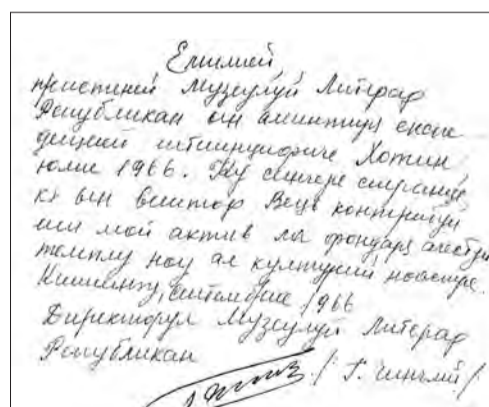 Емилией,
приетиней Музеулуй Литерар
Републикан ын аминтиря експе
дицией штиинцифиче Хотин,
юлие 1966. Ку синчере сперанце,
кэ ын виитор Вець контрибуи
ши май актив ла фондаря ачестуй
темплу ноу ал културий ноастре.
Кишинэу, септембрие 1966
Директорул Музеулуй Литерар
Републикан
/ Г. /